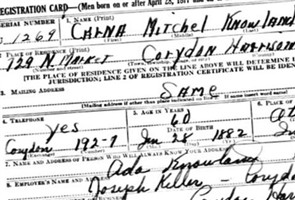 REGISTRATION CARD—(Men born on or after April 28, 1877 and
SERIAL NUMBER 1. NAME (Print)
1269 CARNA Mitchel Knowland
2. PLACE OF RESIDENCE (Print)
129 N Market Corydon Harrison
[THE PLACE OF RESIDENCE GIVEN ON THE LINE ABOVE WILL DETERMINE
JURISDICTION; LINE 2 OF REGISTRATION CERTIFICATE WILL BE IDE
3. MAILING ADDRESS
SAME
[Mailing address if other than place indicated on line 2.
4. TELEPHONE 5. AGE IN YEARS 6. PLACE OF
yes 60
DATE OF BIRTH
Corydon 192-Y Jan 28 1882
7. NAME AND ADDRESS OF PERSON WHO WILL ALWAYS KNOW YOUR
Ada Knowland
8. EMPLOYER'S NAME AND
Joseph Keller — Corydon